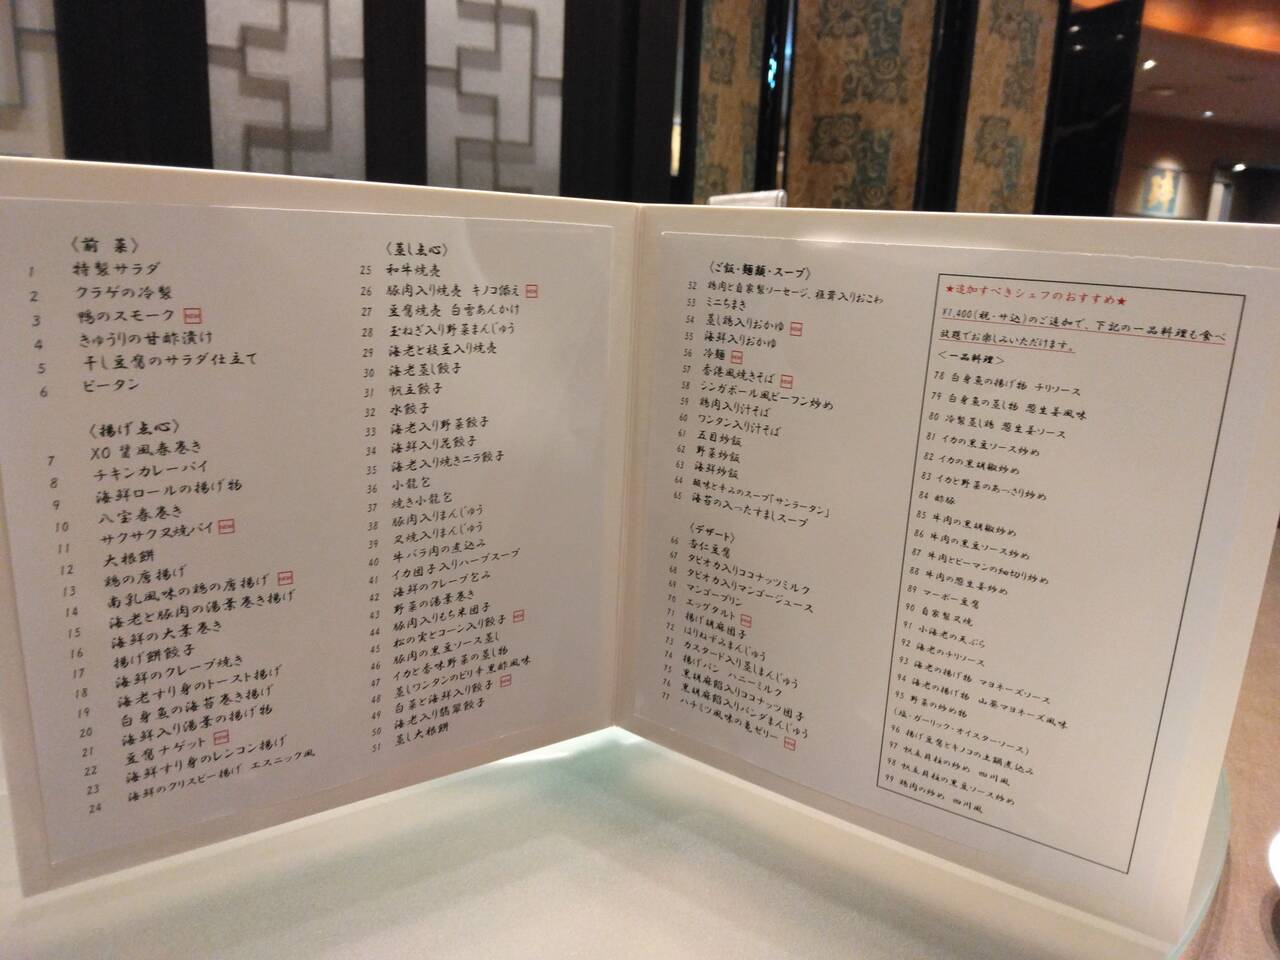 〈前 菜〉
1 特製サラダ
2 クラゲの冷製
3 鴨のスモーク NEW
4 きゅうりの甘酢漬け
5 干し豆腐のサラダ仕立て
6 ピータン
〈揚げ点心〉
7 XO醤風春巻き
8 チキンカレーパイ
9 海鮮ロールの揚げ物
10 八宝春巻き
11 サクサク叉焼パイ NEW
12 大根餅
13 鶏の唐揚げ
14 南乳風味の鶏の唐揚げ NEW
15 海老と豚肉の湯葉巻き揚げ
16 海鮮の大葉巻き
17 揚げ餅餃子
18 海鮮のクレープ焼き
19 海老すり身のトースト揚げ
20 白身魚の海苔巻き揚げ
21 海鮮入り湯葉の揚げ物
22 豆腐ナゲット NEW
23 海鮮すり身のレンコン揚げ
24 海鮮のクリスピー揚げ エスニック風
〈蒸し点心〉
25 和牛焼売
26 豚肉入り焼売 キノコ添え NEW
27 豆腐焼売 白雪あんかけ
28 玉ねぎ入り野菜まんじゅう
29 海老と枝豆入り焼売
30 海老蒸し餃子
31 帆立餃子
32 水餃子
33 海老入り野菜餃子
34 海鮮入り花餃子
35 海老入り焼きニラ餃子
36 小龍包
37 焼き小龍包
38 豚肉入りまんじゅう
39 叉焼入りまんじゅう
40 牛バラ肉の煮込み
41 イカ団子入りハーブスープ
42 海鮮のクレープ包み
43 野菜の湯葉巻き
44 豚肉入りもち米団子
45 松の実とコーン入り餃子 NEW
46 豚肉の黒豆ソース蒸し
47 イカと香味野菜の蒸し物
48 蒸しワンタンのピリ辛黒酢風味
49 白菜と海鮮入り餃子 NEW
50 海老入り翡翠餃子
51 蒸し大根餅
〈ご飯・麺類・スープ〉
52 鶏肉と自家製ソーセージ、椎茸入りおこわ
53 ミニちまき
54 蒸し鶏入りおかゆ NEW
55 海鮮入りおかゆ
56 冷麺 NEW
57 香港風焼きそば NEW
58 シンガポール風ビーフン炒め
59 鶏肉入り汁そば
60 ワンタン入り汁そば
61 五目炒飯
62 野菜炒飯
63 海鮮炒飯
64 酸味と辛みのスープ「サンラータン」
65 海苔の入ったすましスープ
〈デザート〉
66 杏仁豆腐
67 タピオカ入りココナッツミルク
68 タピオカ入りマンゴージュース
69 マンゴープリン
70 エッグタルト NEW
71 揚げ胡麻団子
72 はりねずみまんじゅう
73 カスタード入り蒸しまんじゅう
74 揚げパン ハニーミルク
75 黒胡麻餡入りココナッツ団子
76 黒胡麻餡入りパンダまんじゅう
77 ハチミツ風味の亀ゼリー NEW
★追加すべきシェフのおすすめ★
¥1,400(税・サ込)のご追加で、下記の一品料理も食べ
放題でお楽しみいただけます。
＜一品料理＞
78 白身魚の揚げ物 チリソース
79 白身魚の蒸し物 葱生姜風味
80 冷製蒸し鶏 葱生姜ソース
81 イカの黒豆ソース炒め
82 イカの黒胡椒炒め
83 イカと野菜のあっさり炒め
84 酢豚
85 牛肉の黒胡椒炒め
86 牛肉の黒豆ソース炒め
87 牛肉とピーマンの細切り炒め
88 牛肉の葱生姜炒め
89 マーボー豆腐
90 自家製叉焼
91 小海老の天ぷら
92 海老のチリソース
93 海老の揚げ物 マヨネーズソース
94 海老の揚げ物 山葵マヨネーズ風味
95 野菜の炒め物
(塩・ガーリック・オイスターソース)
96 揚げ豆腐とキノコの土鍋煮込み
97 帆立貝柱の炒め 四川風
98 帆立貝柱の黒豆ソース炒め
99 鶏肉の炒め 四川風